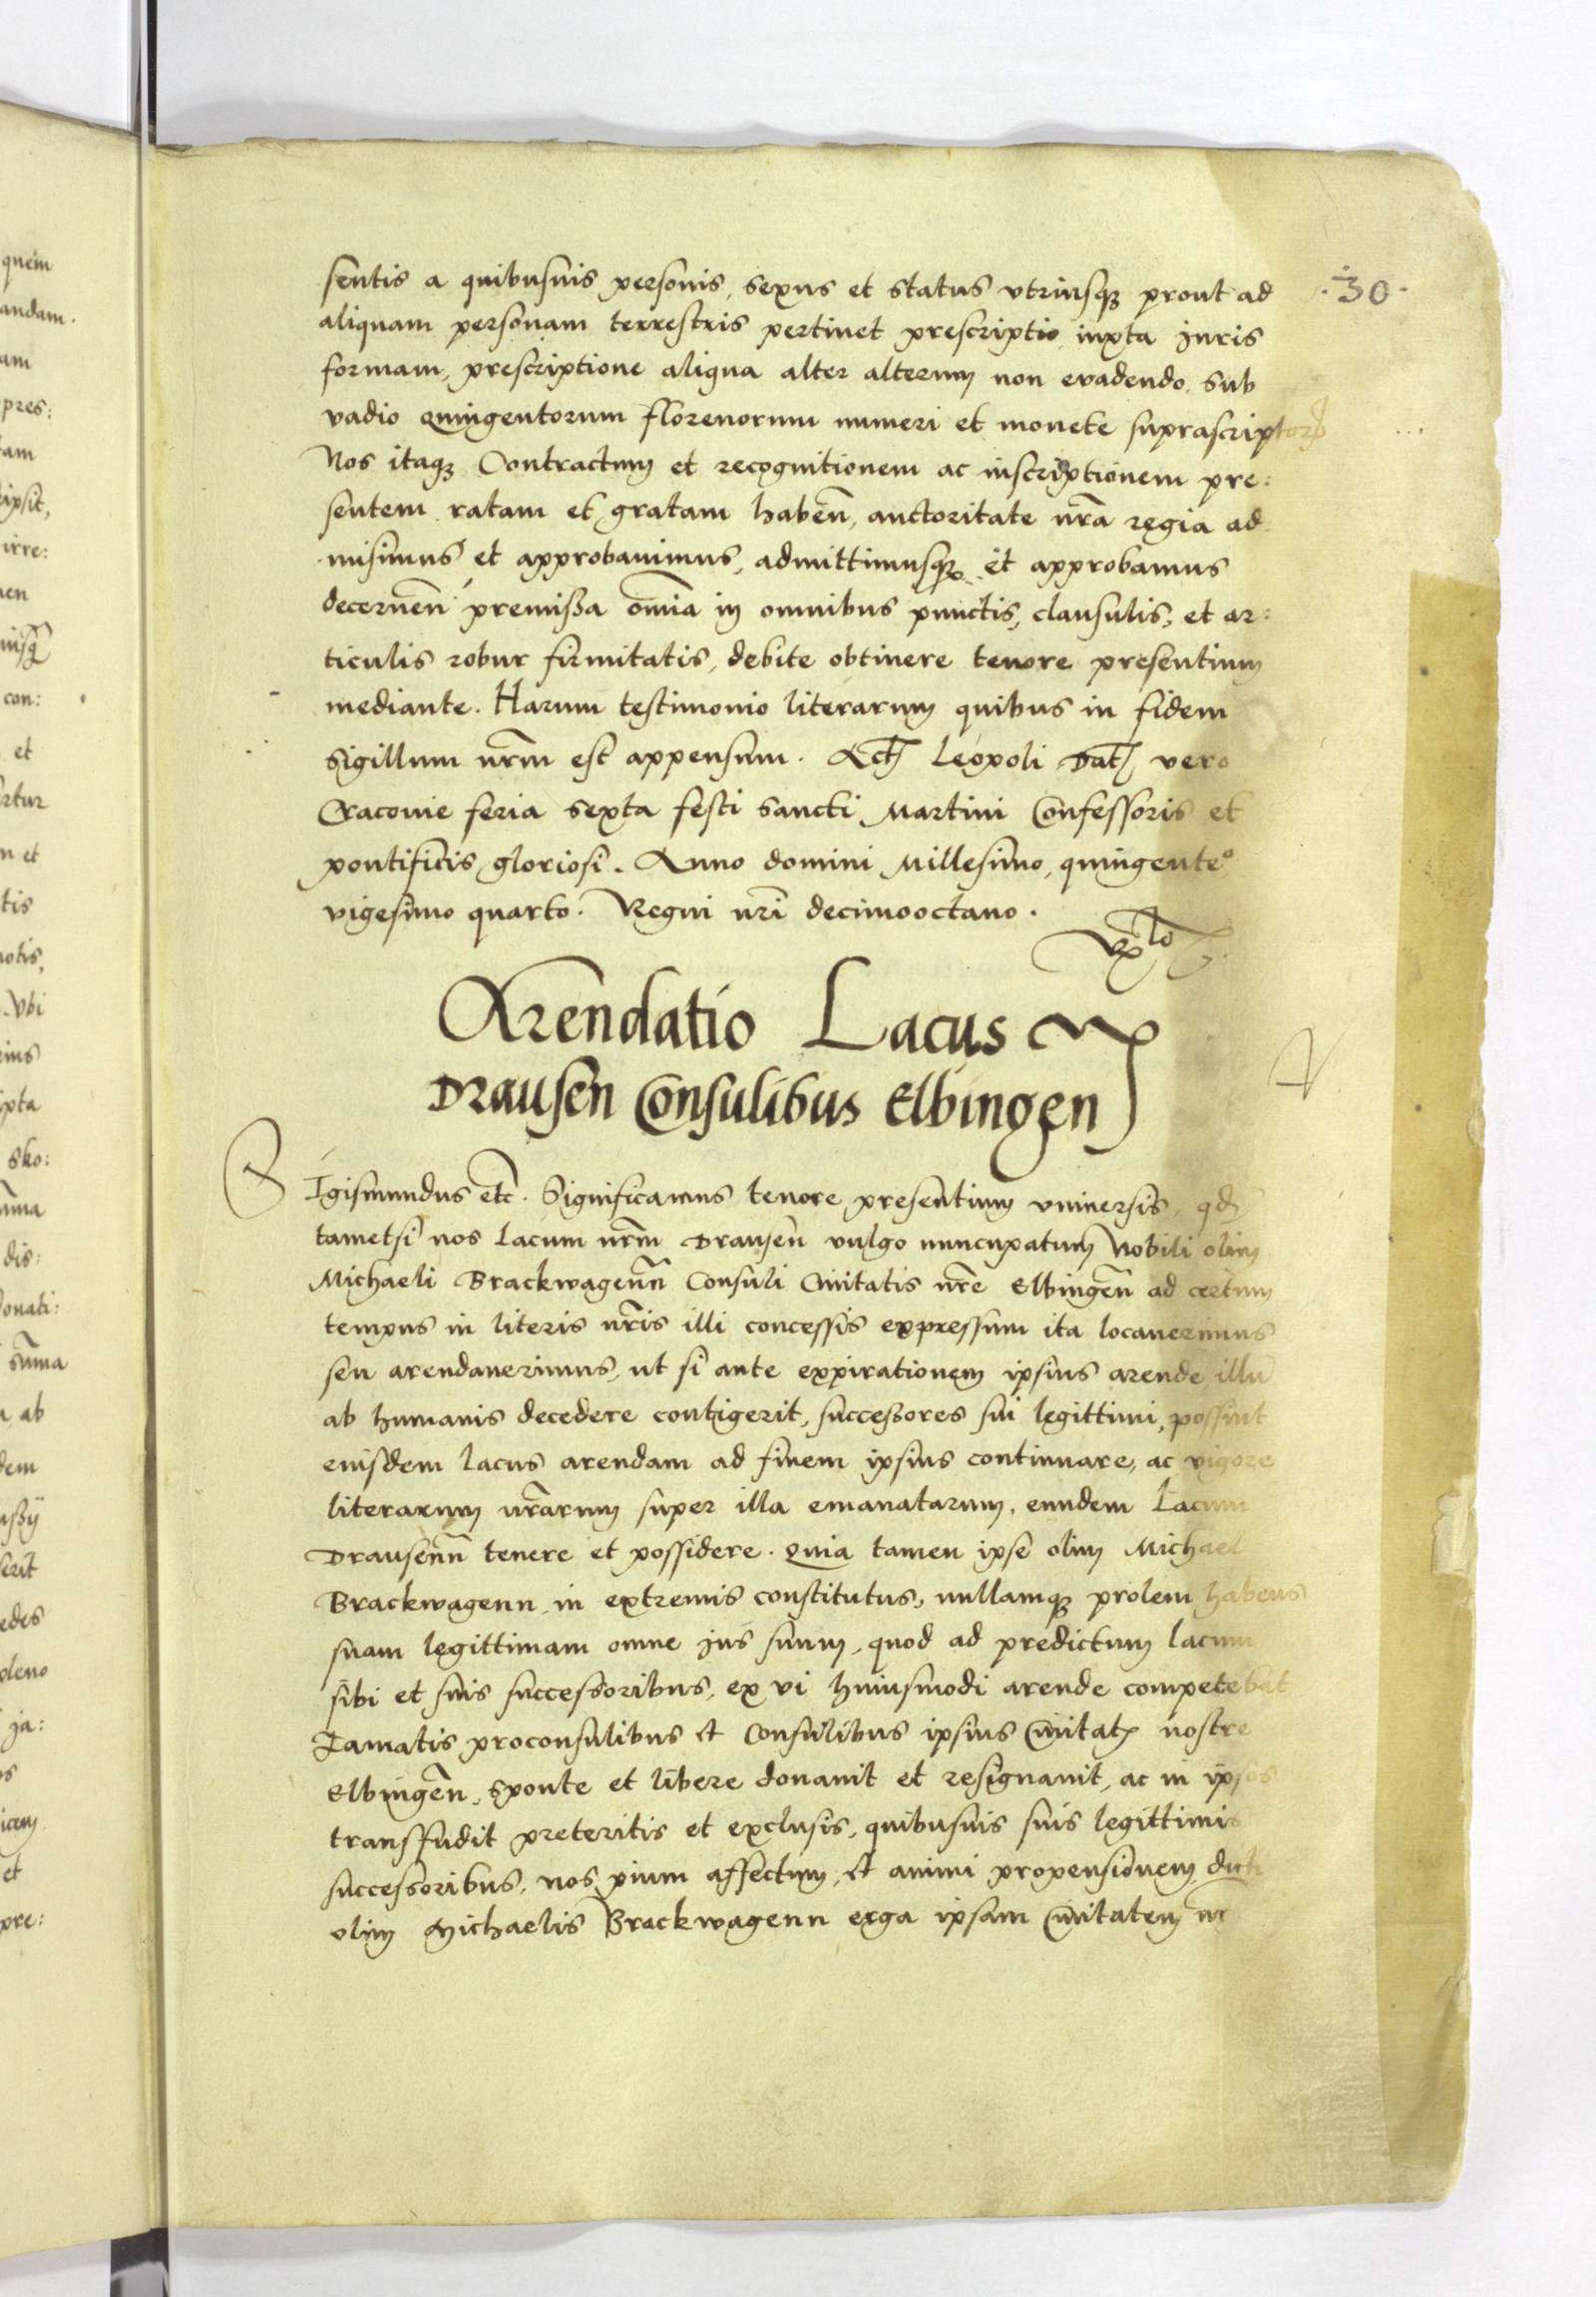 30
sentis a quibusuis personis, sexus et status vtriusq3 prout ad
aliquam personam terrestris pertinet prescriptio iuxta Juris
formam, prescriptione aliqua alter alterum non evadendo, sub
vadio quingentorum florenorum numeri et monete suprascriptorꝝ
Nos itaq3 Contractum et recognitionem ac inscriptionem pre:
sentem ratam et gratam habeñ, auctoritate nr̃a regia ad
misimus et approbauimus, admittimusq3 et approbamus
decerneñ premissa om̃ia in omnibus punctis, clausulis, et ar:
ticulis robur firmitatis, debite obtinere tenore presentium
mediante. Harum testimonio literarum quibus in fidem
Sigillum nr̃m est appensum. Act̃ Leopoli Dat̃ vero
Cracouie feria sexta festi Sancti Martini Confessoris et
pontificis gloriosi. Anno domini Millesimo, quingenteᵒ
vigesimo quarto. Regni nr̃i decimooctauo.
Arendatio Lacus
Drausen Consulibus Elbingeñ
SIgismundus etc̃. Significamus tenore presentium vniuersis, qd
tametsi nos Lacum nr̃m Drauseñ vulgo nuncupatum Nobili olim
Michaeli Brackwagenñ Consuli Ciuitatis nr̃e Elbingeñ ad certum
tempus in literis nr̃is illi concessis expressum ita locauerimus
seu arendauerimus, ut si ante expirationem ipsius arende illũ
ab humanis decedere contigerit, successores sui legittimi, possint
eiusdem lacus arendam ad finem ipsius continuare, ac vigore
literarum nr̃arum super illa emanatarum, eundem Lacum
Drausenñ tenere et possidere. Quia tamen ipse olim Michael
Brackwagenn in extremis constitutus, nullamq3 prolem habens
suam legittimam omne Jus suum, quod ad predictum lacum
sibi et suis successoribus, ex vi huiusmodi arende competebat
Famatis proconsulibus et Consulibus ipsius Ciuitat̃ nostre
Elbingeñ, sponte et libere donauit et resignauit, ac in ipsos
transfudit preteritis et exclusis, quibusuis suis legittimis
successoribus, nos pium affectum, et animi propensionem dicti
olim Michaelis Brackwagenn erga ipsam Ciuitatem